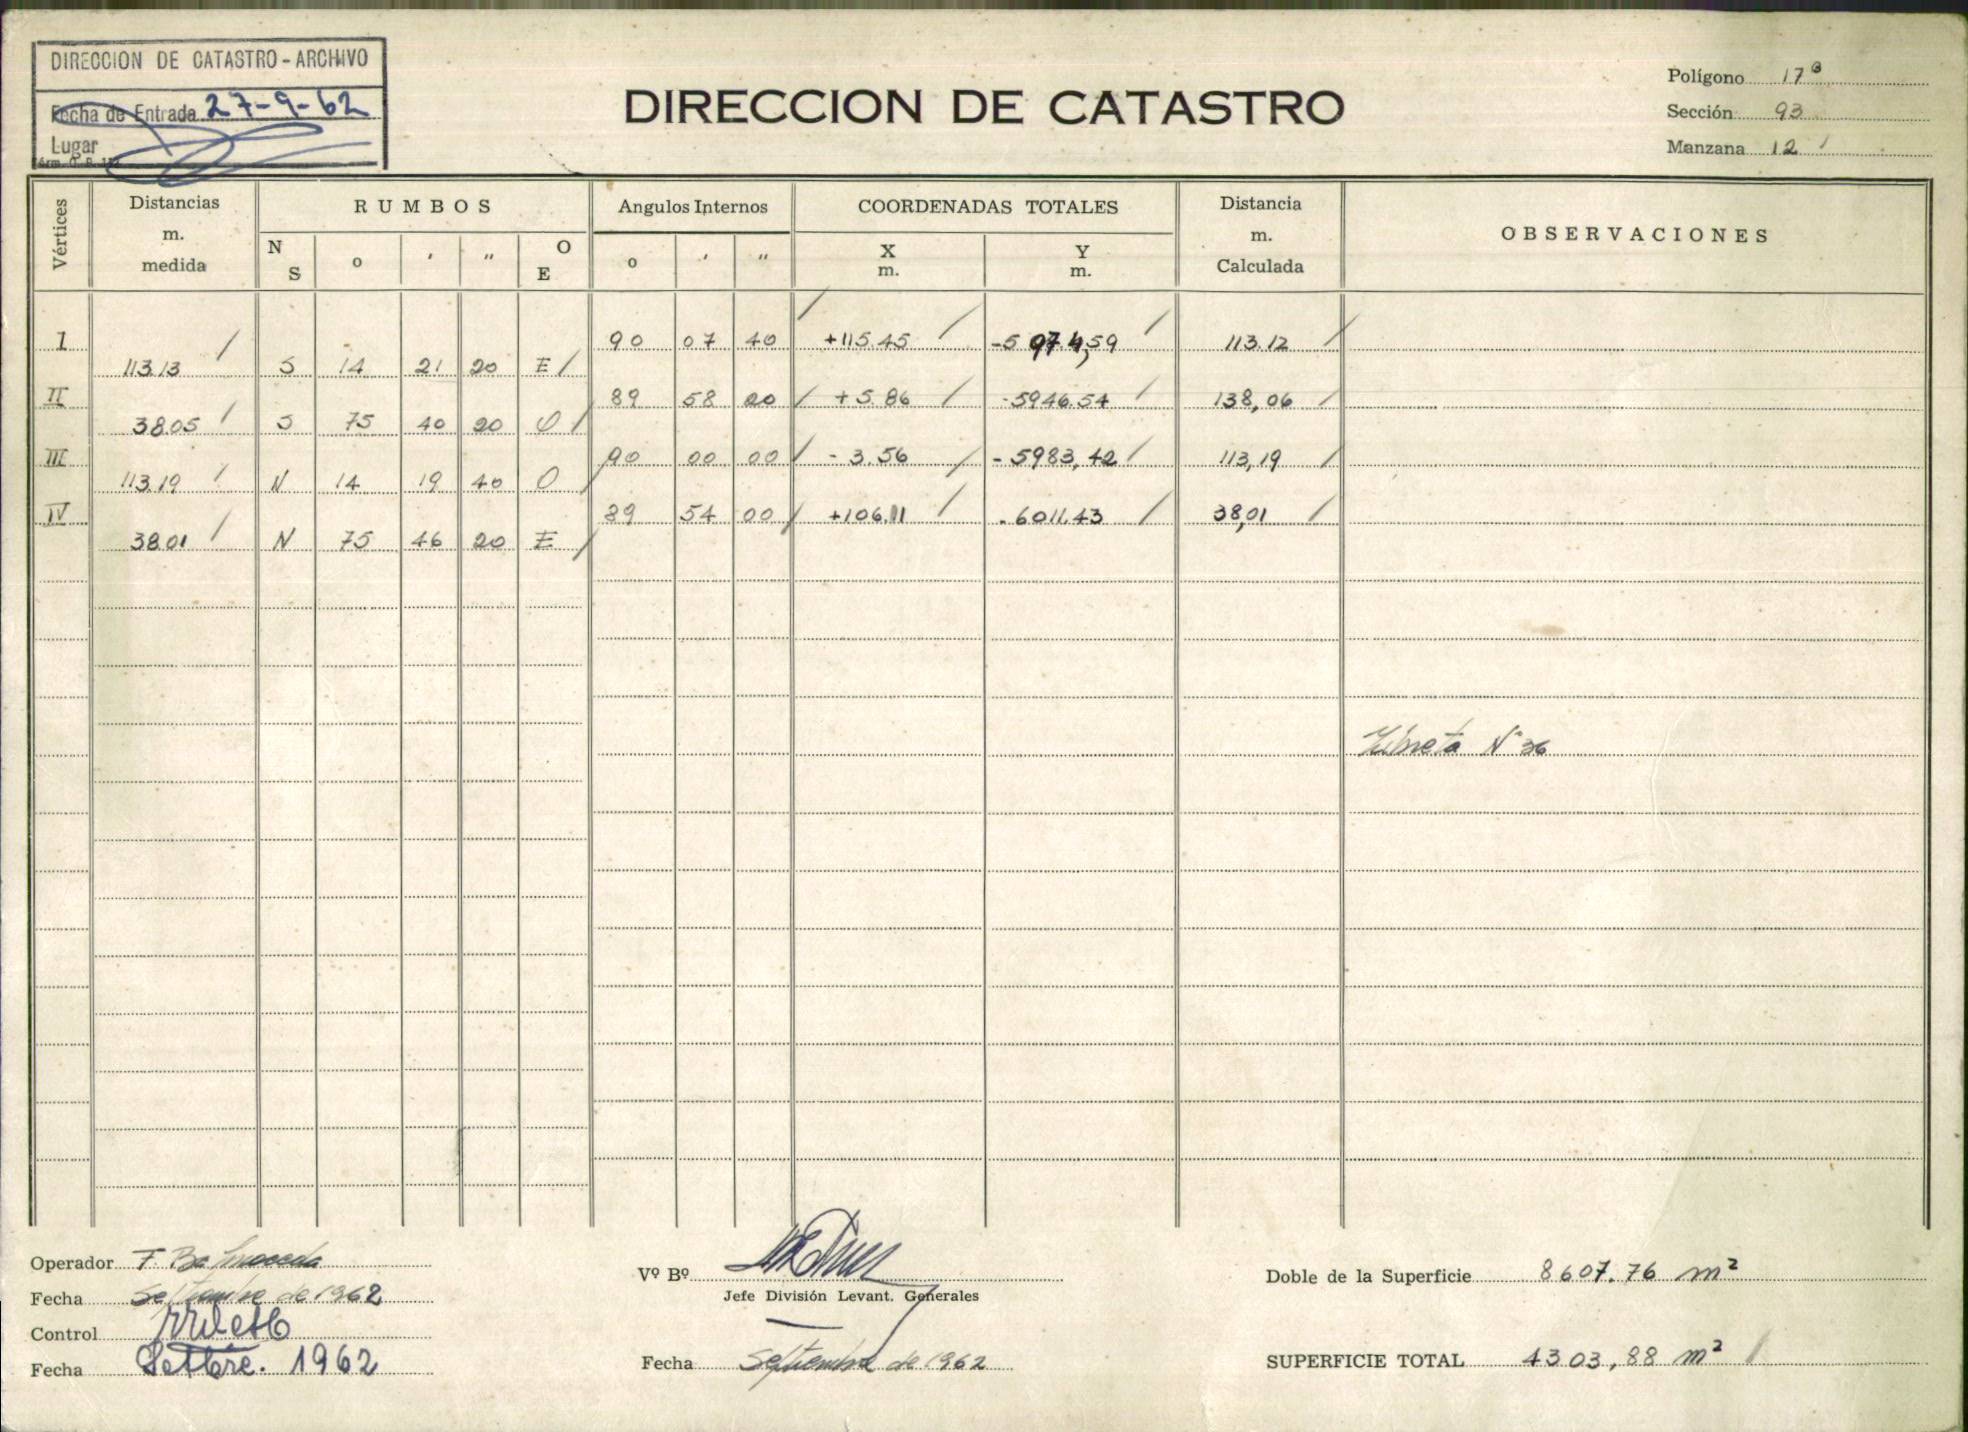 DIRECCION DE CATASTRO - ARCHIVO
Fecha de Entrada 27-9-62
Lugar
DIRECCION DE CATASTRO
Polígono 17ª
Sección 93
Manzana 12
Vértices
Distancias m. medida
RUMBOS
Angulos Internos
COORDENADAS TOTALES
Distancia m. Calculada
OBSERVACIONES
N S o ' " O E
o ' "
X m.
Y m.
I 90 07 40 +115.45 -5974,59 113.12
113.13 S 14 21 20 E
II 89 58 20 +5.86 -5946.54 138,06
38.05 S 75 40 20 O
III 90 00 00 -3.56 -5983,42 113,19
113.19 N 14 19 40 O
IV 89 54 00 +106.11 -6011.43 38,01
38.01 N 75 46 20 E
Libreta Nº 36
Operador F.
Fecha Septiembre de 1962
Control
Fecha Setbre. 1962
Vº Bº
Jefe División Levant. Generales
Fecha Septiembre de 1962
Doble de la Superficie 8607.76 m²
SUPERFICIE TOTAL 4303,88 m²